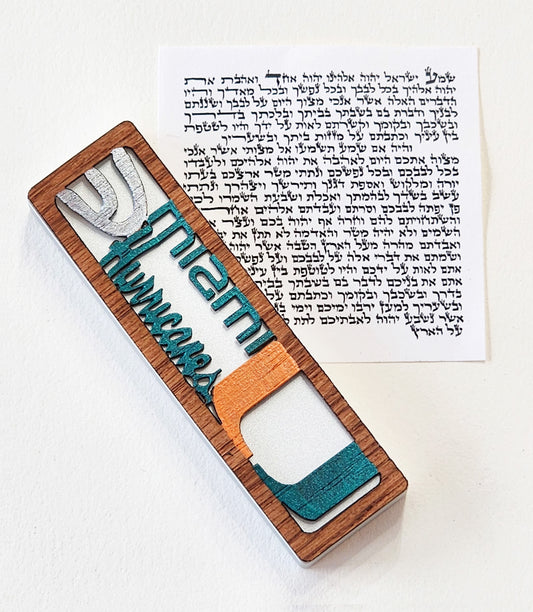 שמע ישראל יהוה אלהינו יהוה אחד ואהבת את
יהוה אלהיך בכל לבבך ובכל נפשך ובכל מאדך והיו
הדברים האלה אשר אנכי מצוך היום על לבבך ושננתם
לבניך ודברת בם בשבתך בביתך ובלכתך בדרך
ובשכבך ובקומך וקשרתם לאות על ידך והיו לטטפת
בין עיניך וכתבתם על מזזות ביתך ובשעריך
והיה אם שמע תשמעו אל מצותי אשר אנכי
מצוה אתכם היום לאהבה את יהוה אלהיכם ולעבדו
בכל לבבכם ובכל נפשכם ונתתי מטר ארצכם בעתו
יורה ומלקוש ואספת דגנך ותירשך ויצהרך ונתתי
עשב בשדך לבהמתך ואכלת ושבעת השמרו לכם
פן יפתה לבבכם וסרתם ועבדתם אלהים
והשתחויתם להם וחרה אף יהוה בכם ועצר
השמים ולא יהיה מטר והאדמה לא תתן את
ואבדתם מהרה מעל הארץ הטבה אשר יהוה
ושמתם את דברי אלה על לבבכם ועל
אתם לאות על ידכם והיו לטוטפת בין
אתם את בניכם לדבר בם בשבתך
בדרך ובשכבך ובקומך וכתבתם על
ובשעריך למען ירבו ימיכם וימי
אשר נשבע יהוה לאבתיכם לתת
על הארץ
ש
MIAMI
Hurricanes